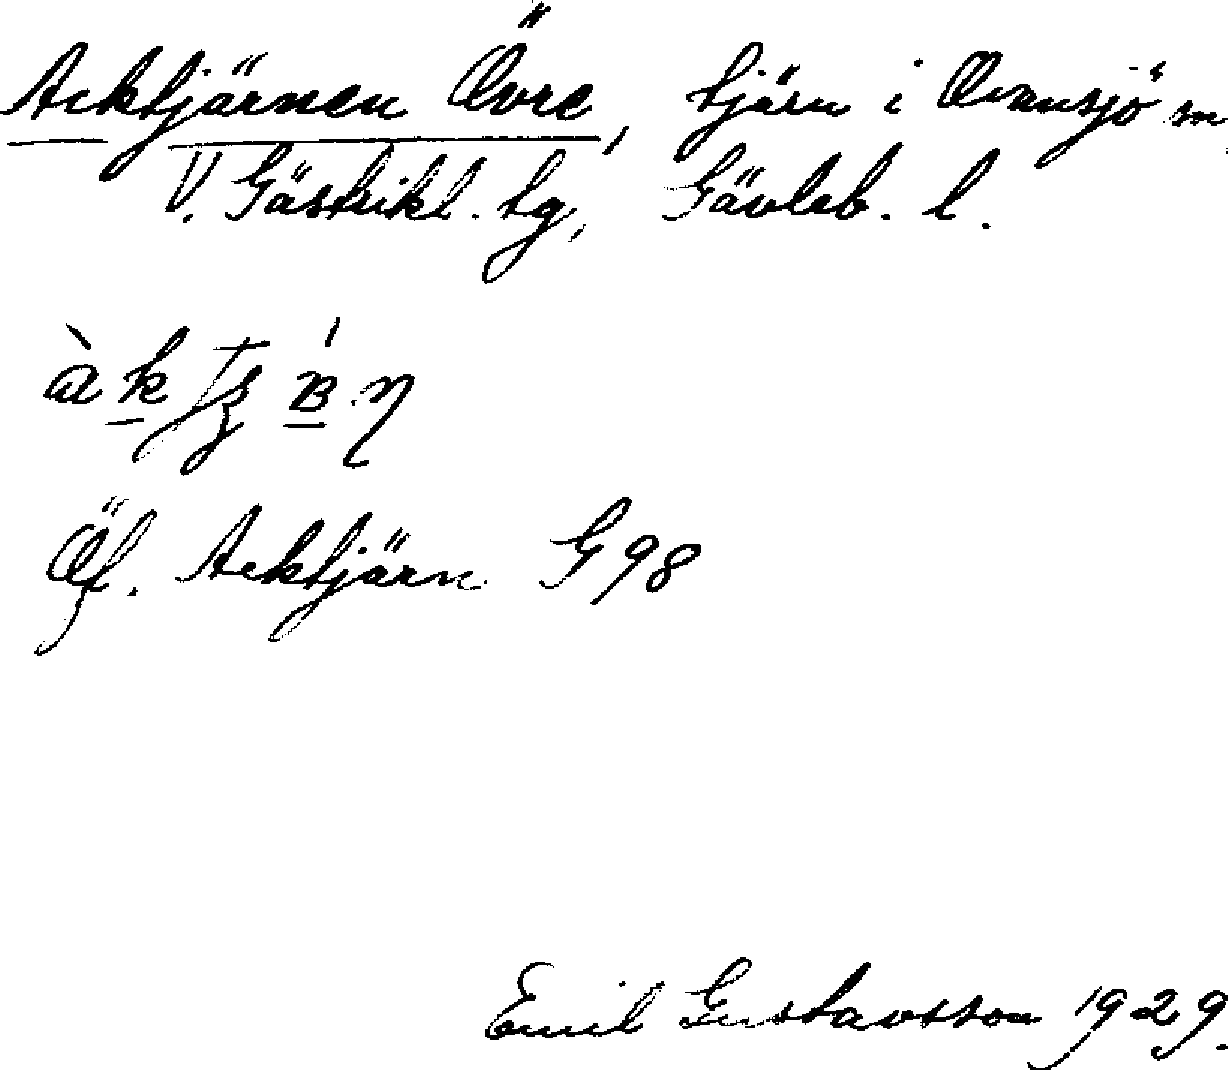 Acktjärnen Övre, tjärn i Ovansjö sn
V. Gästrikl. tg, Gävleb. l.
Öf. Acktjärn G 98
Emil Gustavsson 1929.